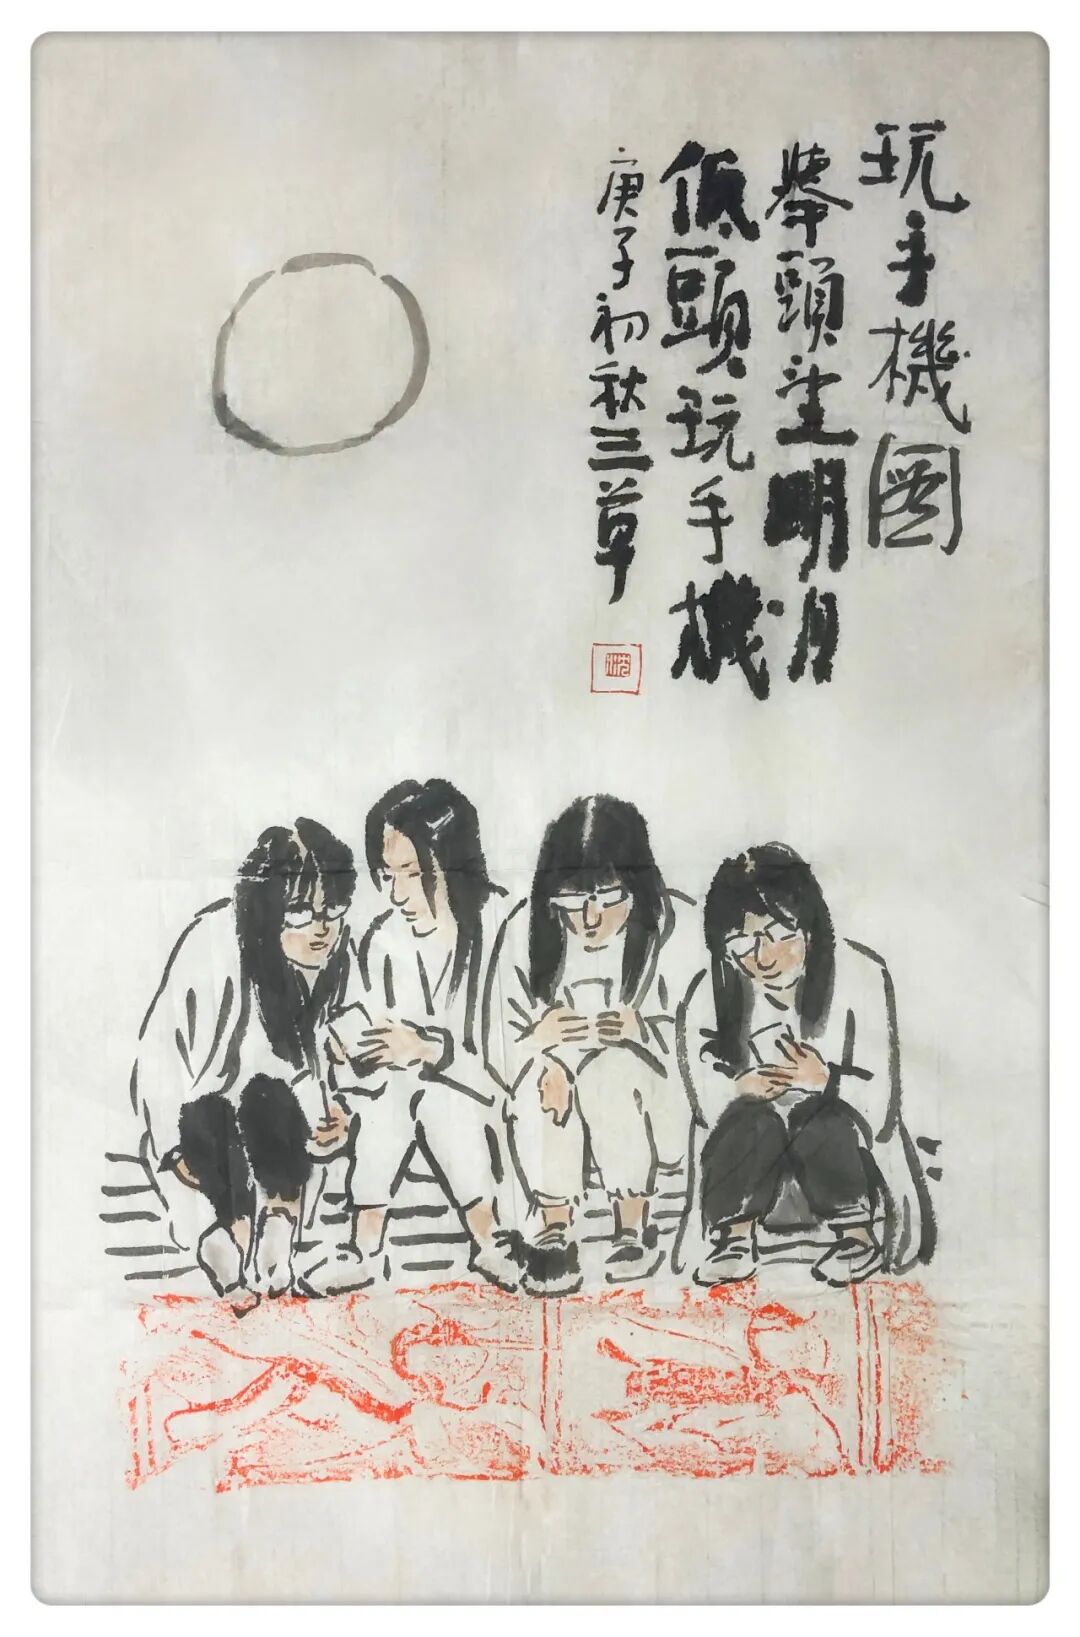 玩手機圖
舉頭望明月
低頭玩手機
庚子初秋三草